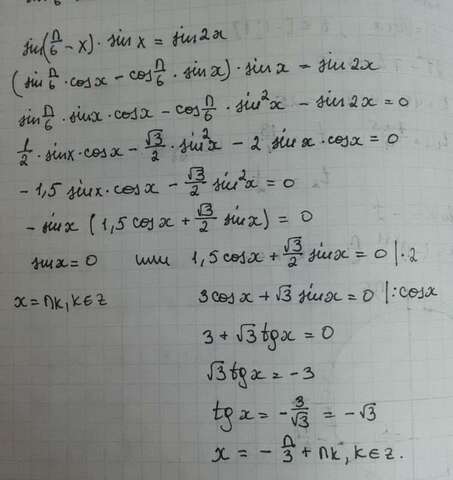 sin(π/6 - x) · sin x = sin 2x
(sin π/6 · cos x - cos π/6 · sin x) · sin x = sin 2x
sin π/6 · sin x · cos x - cos π/6 · sin²x - sin 2x = 0
1/2 · sin x · cos x - √3/2 · sin²x - 2 sin x · cos x = 0
- 1,5 sin x · cos x - √3/2 sin²x = 0
- sin x (1,5 cos x + √3/2 sin x) = 0
sin x = 0 или 1,5 cos x + √3/2 sin x = 0 |·2
x = πk, k∈Z 3 cos x + √3 sin x = 0 |: cos x
3 + √3 tg x = 0
√3 tg x = -3
tg x = - 3/√3 = -√3
x = - π/3 + πk, k∈Z.